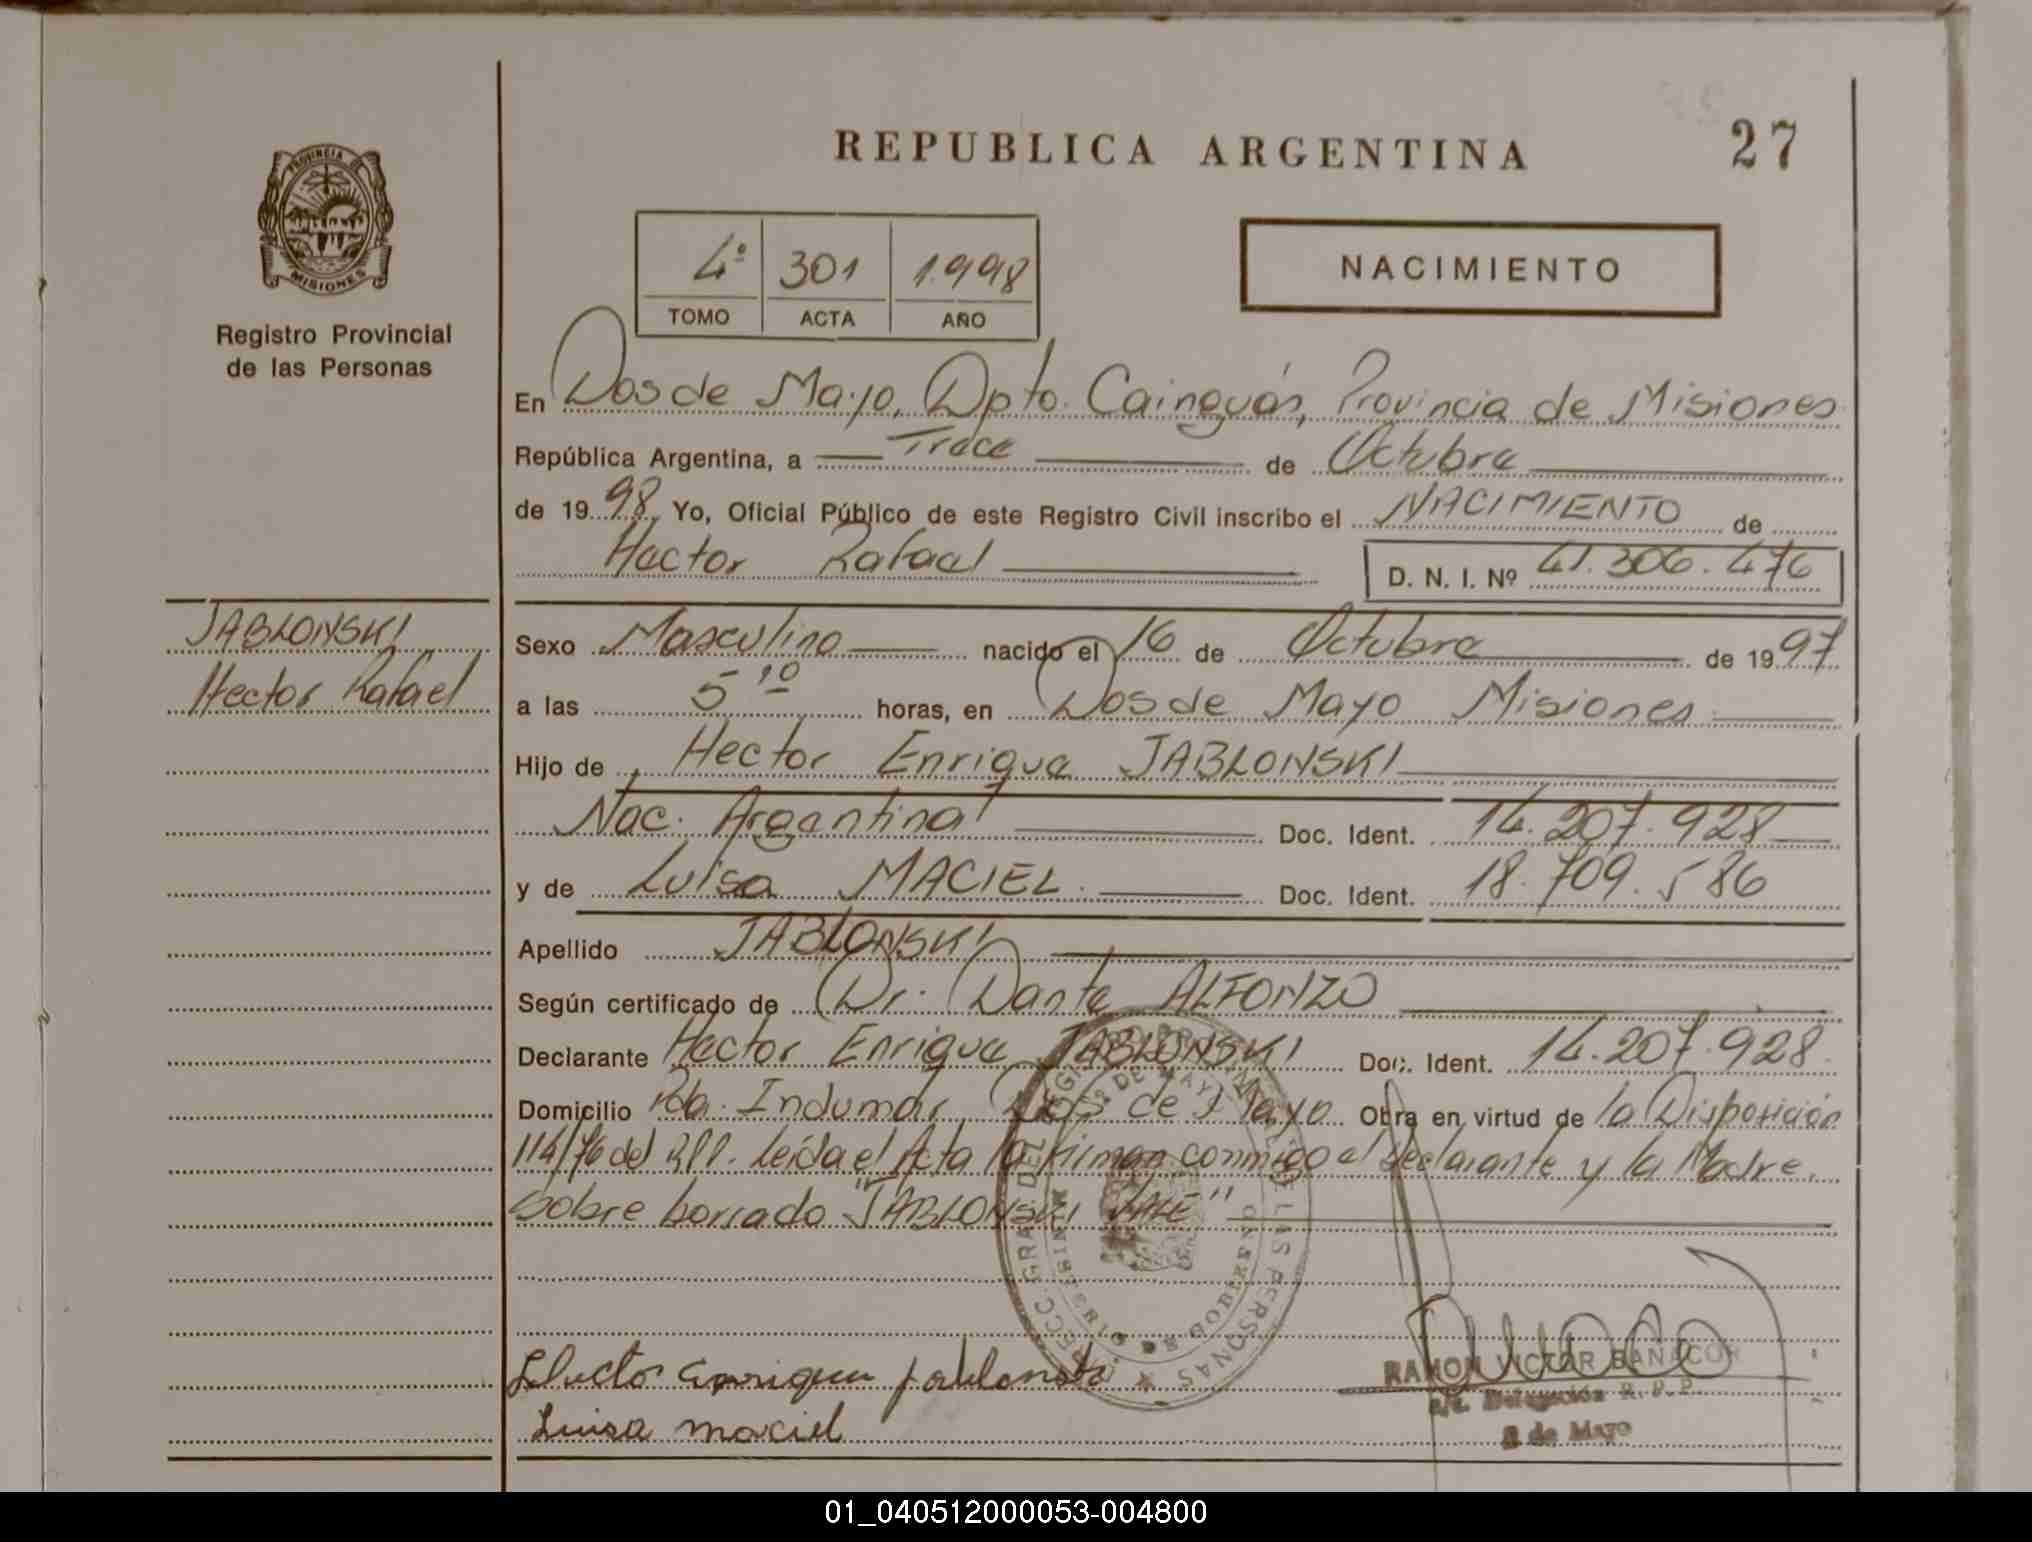 REPUBLICA ARGENTINA
27
PROVINCIA DE
MISIONES
Registro Provincial
de las Personas
4º 301 1.998
TOMO ACTA AÑO
NACIMIENTO
En Dos de Mayo, Dpto. Cainguás, Provincia de Misiones
República Argentina, a Trece de Octubre
de 1998 Yo, Oficial Público de este Registro Civil inscribo el NACIMIENTO de
Hector Rafael D. N. I. Nº 41.306.476
JABLONSKI
Hector Rafael
Sexo Masculino nacido el 16 de Octubre de 1997
a las 5,10 horas, en Dos de Mayo Misiones
Hijo de Hector Enrique JABLONSKI
Nac. Argentina Doc. Ident. 14.207.928
y de Luisa MACIEL Doc. Ident. 18.709.586
Apellido JABLONSKI
Según certificado de Dr. Dante ALFONZO
Declarante Hector Enrique JABLONSKI Doc. Ident. 14.207.928
Domicilio Pda. Indumar Dos de Mayo Obra en virtud de la Disposición
114/76 del RPP. Leída el Acta la firman conmigo el declarante y la Madre.
Sobre borrado "JABLONSKI VALE"
Hector Enrique Jablonski
Luisa maciel
RAMON VICTOR
Delegación R.P.P.
2 de Mayo
01_040512000053-004800